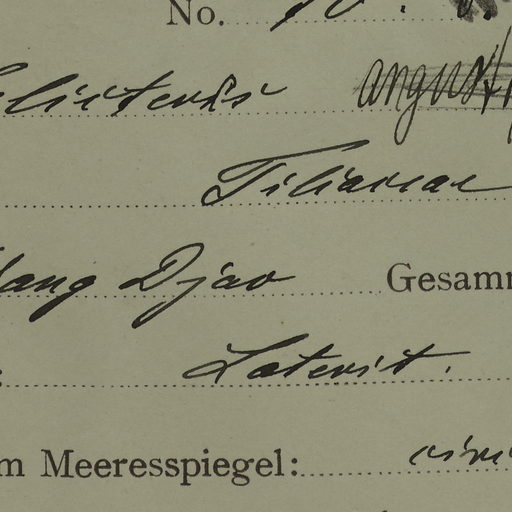 No.
Helicteris angusti
Tiliaceae
Wang Djao Gesamm
Laterit.
m Meeresspiegel: